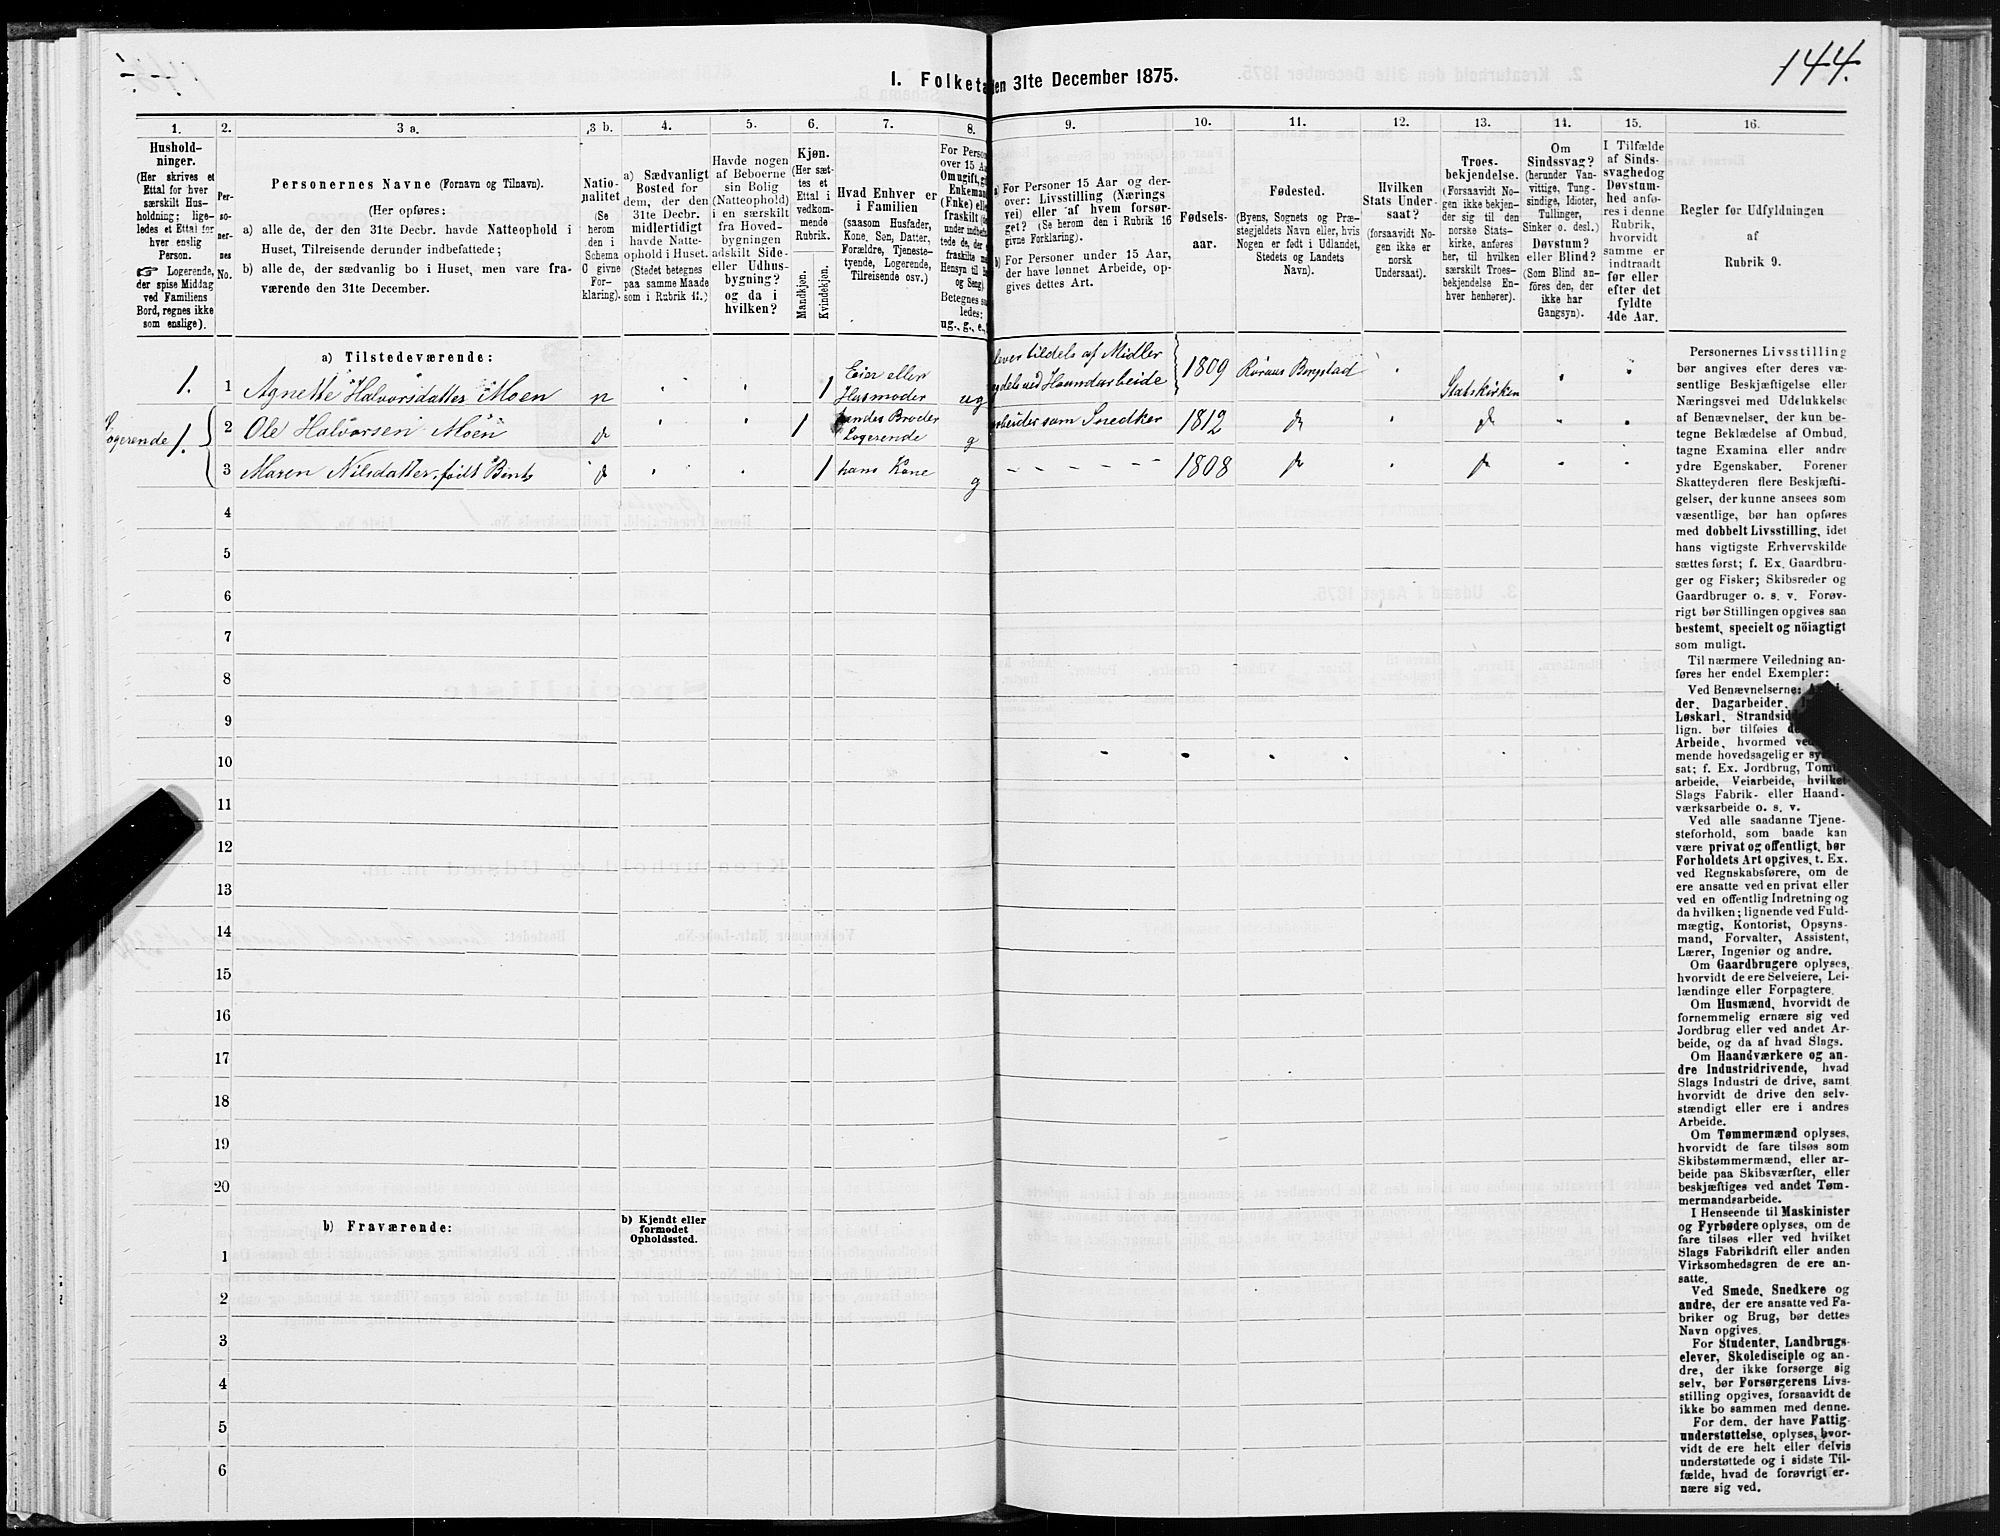 144.
I. Folketa
den 31te December 1875.
1.
2.
3 a.
3 b.
4.
5.
6.
7.
8.
9.
10.
11.
12.
13.
14.
15.
16.
Hushold-
ninger.
(Her skrives et
Ettal for hver
særskilt Hus-
holdning; lige-
ledes et Ettal for
hver enslig
Person.
☞ Logerende,
der spise Middag
ved Familiens
Bord, regnes ikke
som enslige).
Per-
so-
ner-
nes
No.
Personernes Navne (Fornavn og Tilnavn).
(Her opføres:
a) alle de, der den 31te Decbr. havde Natteophold i
Huset, Tilreisende derunder indbefattede;
b) alle de, der sædvanlig bo i Huset, men vare fra-
værende den 31te December.
Natio-
nalitet
(Se
herom
den i
Schema
O givne
For-
klaring).
a) Sædvanligt
Bosted for
dem, der den
31te Decbr.
midlertidigt
havde Natte-
ophold i Huset.
(Stedet betegnes
paa samme Maade
som i Rubrik 11.)
Havde nogen
af Beboerne
sin Bolig
(Natteophold)
i en særskilt
fra Hoved-
bygningen
adskilt Side-
eller Udhus-
bygning?
og da i
hvilken?
Kjøn.
(Her sæt-
tes et
Ettal i
vedkom-
mende
Rubrik.
Mandkjøn.
Kvindekjøn.
Hvad Enhver er
i Familien
(saasom Husfader,
Kone, Søn, Datter,
Forældre, Tjeneste-
tyende, Logerende,
Tilreisende osv.)
For Person
over 15 Aa
Om ugift, gi
Enkeman
(Enke) elle
fraskilt (de
under indbefa
tede de, der e
fraskilte
Hensyn til B
og Seng)
Betegnes sa
ledes:
ug., g., e.,
a) For Personer 15 Aar og der-
over: Livsstilling (Nærings
vei) eller af hvem forsør-
get? (Se herom den i Rubrik 16
givne Forklaring).
b) For Personer under 15 Aar,
der have lønnet Arbeide, op-
gives dettes Art.
Fødsels-
aar.
Fødested.
(Byens, Sognets og Præ-
stegjeldets Navn eller, hvis
Nogen er født i Udlandet,
Stedets og Landets
Navn).
Hvilken
Stats Under-
saat?
(forsaavidt No-
gen ikke er
norsk
Undersaat).
Troes-
bekjendelse.
(Forsaavidt No-
gen ikke bekjen-
der sig til den
norske Stats-
kirke, anføres
her, til hvilken
særskilt Troes-
bekjendelse En-
hver henhører).
Om
Sindssvag?
(herunder Van-
vittige, Tung-
sindige, Idioter,
Tullinger,
Sinker o. desl.)
Døvstum?
eller Blind?
(Som Blind an-
føres den, der
ikke har
Gangsyn).
I Tilfælde
af Sinds-
svaghedog
Døvstum-
hed anfø-
res i denne
Rubrik,
hvorvidt
samme er
indtraadt
før eller
efter det
fyldte
4de Aar.
Regler for Udfyldningen
af
Rubrik 9.
a) Tilstedeværende:
1. 1 Agnette Halvorsdatter Moen n 1 Eier eller Husmoder ug lever tildels af Midler dels ved Haandarbeide 1809 Røraas Bergstad Statskirken
Logerende 1. 2 Ole Halvorsen Moen d 1 hendes Broder Logerende g arbeider som Snedker 1812 d d
3 Maren Nilsdatter, født d 1 hans Kone g - - - - - - 1808 d d
4
5
6
7
8
9
10
11
12
13
14
15
16
17
18
19
20
b) Fraværende:
b) Kjendt eller
formodet
Opholdssted.
1
2
3
4
5
6
Personernes Livsstilling
bør angives efter deres væ-
sentlige Beskjæftigelse eller
Næringsvei med Udelukkelse
af Benævnelser, der kun be-
tegne Beklædelse af Ombud,
tagne Examina eller andre
ydre Egenskaber. Forener
Skatteyderen flere Beskjæfti-
gelser, der kunne ansees som
væsentlige, bør han opføres
med dobbelt Livsstilling, idet
hans vigtigste Erhvervskilde
sættes først; f. Ex. Gaardbru-
ger og Fisker; Skibsreder og
Gaardbruger o. s. v. Forøv-
rigt bør Stillingen opgives saa
bestemt, specielt og nöiagtigt
som muligt.
Til nærmere Veiledning an-
føres her endel Exempler:
Ved Benævnelserne:
der, Dagarbeider,
Løskarl, Strandsid
lign. bør tilføies
Arbeide, hvormed
mende hovedsagelig er
sat; f. Ex. Jordbrug, Tøm
arbeide, Veiarbeide, hvilket
Slags Fabrik- eller Haand-
værksarbeide o. s. v.
Ved alle saadanne Tjene-
steforhold, som baade kan
være privat og offentligt, bør
Forholdets Art opgives, t. Ex.
ved Regnskabsførere, om de
ere ansatte ved en privat eller
ved en offentlig Indretning og
da hvilken; lignende ved Fuld-
mægtig, Kontorist, Opsyns-
mand, Forvalter, Assistent,
Lærer, Ingeniør og andre.
Om Gaardbrugere oplyses,
hvorvidt de ere Selveiere, Lei-
lændinge eller Forpagtere.
Om Husmænd, hvorvidt de
fornemmelig ernære sig ved
Jordbrug eller ved andet Ar-
beide, og da af hvad Slags.
Om Haandværkere og an-
dre Industridrivende, hvad
Slags Industri de drive, samt
hvorvidt de drive den selv-
stændigt eller ere i andres
Arbeide.
Om Tømmermænd oplyses,
hvorvidt de fare tilsøs som
Skibstømmermænd, eller ar-
beide paa Skibsværfter, eller
beskjæftiges ved andet Tøm-
mermandsarbeide.
I Henseende til Maskinister
og Fyrbødere oplyses, om de
fare tilsøs eller ved hvilket
Slags Fabrikdrift eller anden
Virksomhedsgren de ere an-
satte.
Ved Smede, Snedkere og
andre, der ere ansatte ved Fa-
briker og Brug, bør dettes
Navn opgives.
For Studenter, Landbrugs-
elever, Skoledisciple og an-
dre, der ikke forsørge sig
selv, bør Forsørgerens Livs-
stilling opgives, forsaavidt de
ikke bo sammen med denne.
For dem, der have Fattig-
understøttelse, oplyses, hvor-
vidt de ere helt eller delvis
understøttede og i sidste Til-
fælde, hvad de forøvrigt er-
nære sig ved.